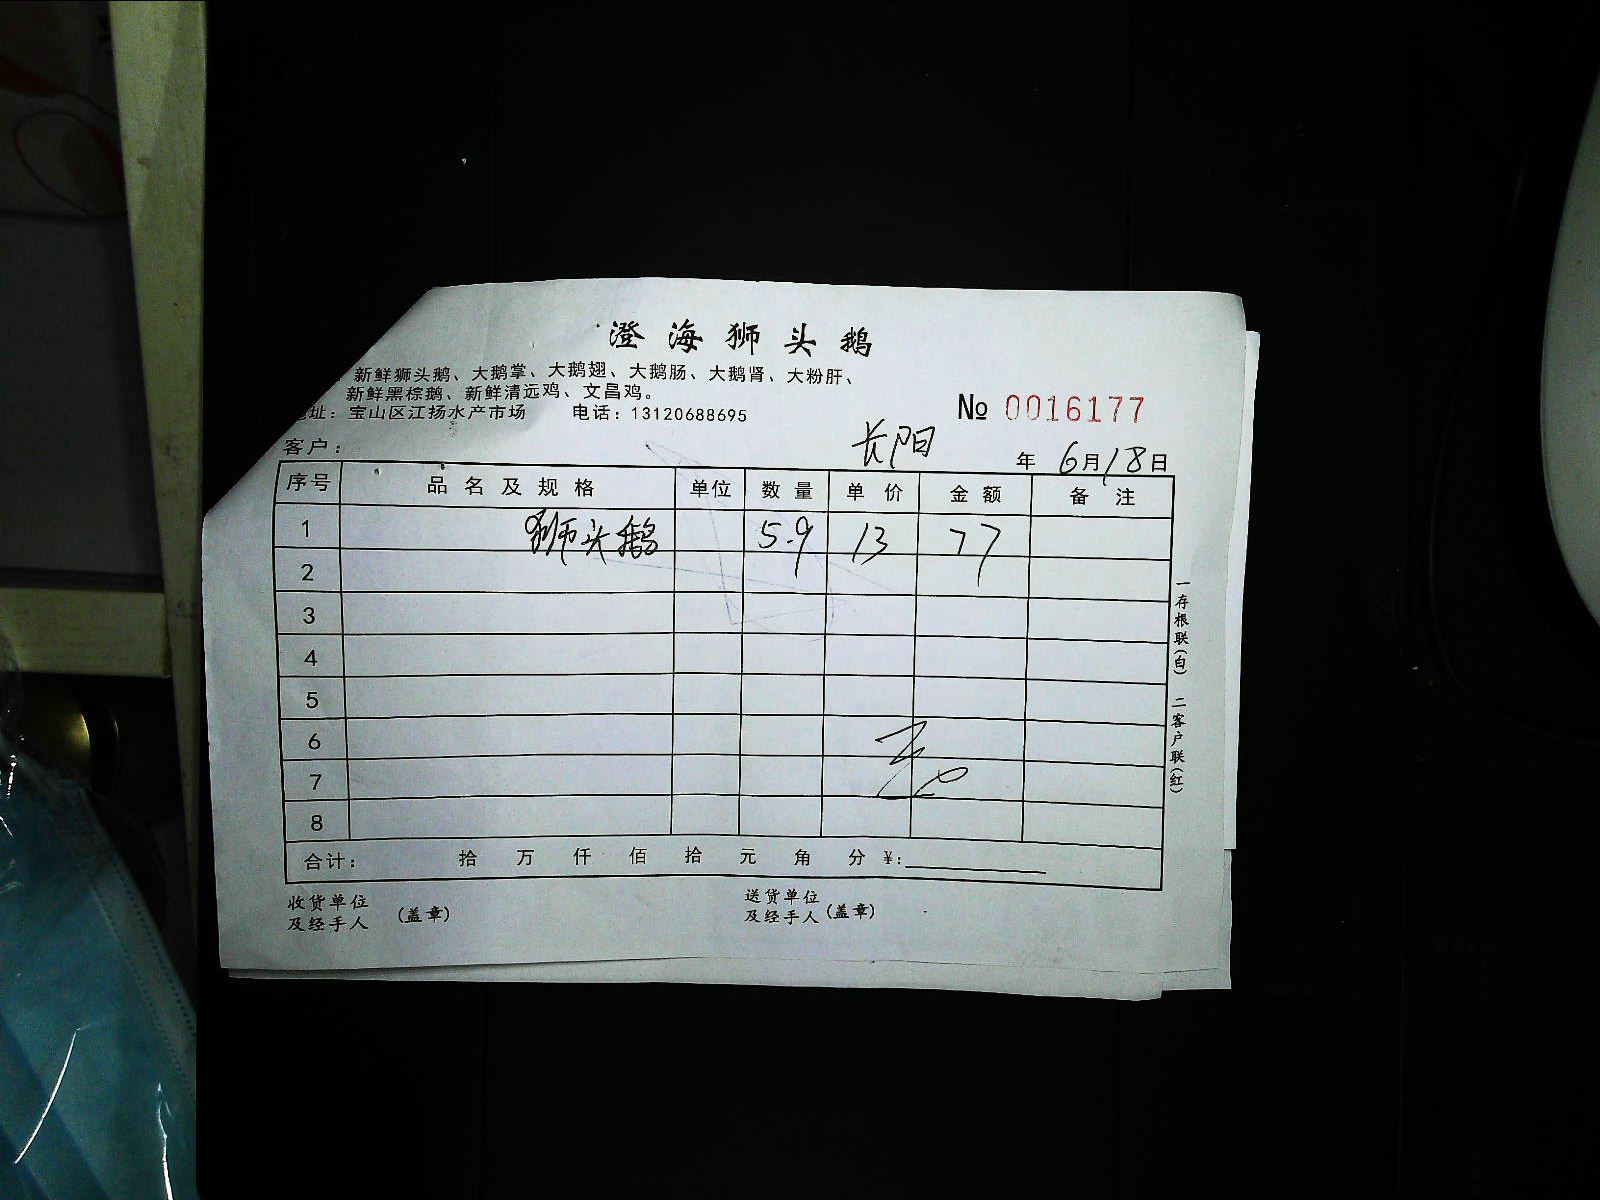 澄海狮头鹅
新鲜狮头鹅、大鹅掌、大鹅翅、大鹅肠、大鹅肾、大粉肝、
新鲜黑棕鹅、新鲜清远鸡、文昌鸡。
址：宝山区江扬水产市场 电话：13120688695
№ 0016177
客户： 长阳 年 6月18日
序号 品名及规格 单位 数量 单价 金额 备注
1 狮头鹅 5.9 13 77
2
3
4
5
6
7
8
合计： 拾 万 仟 佰 拾 元 角 分 ¥：
收货单位
及经手人 (盖章)
送货单位
及经手人 (盖章)
一存根联(白) 二客户联(红)